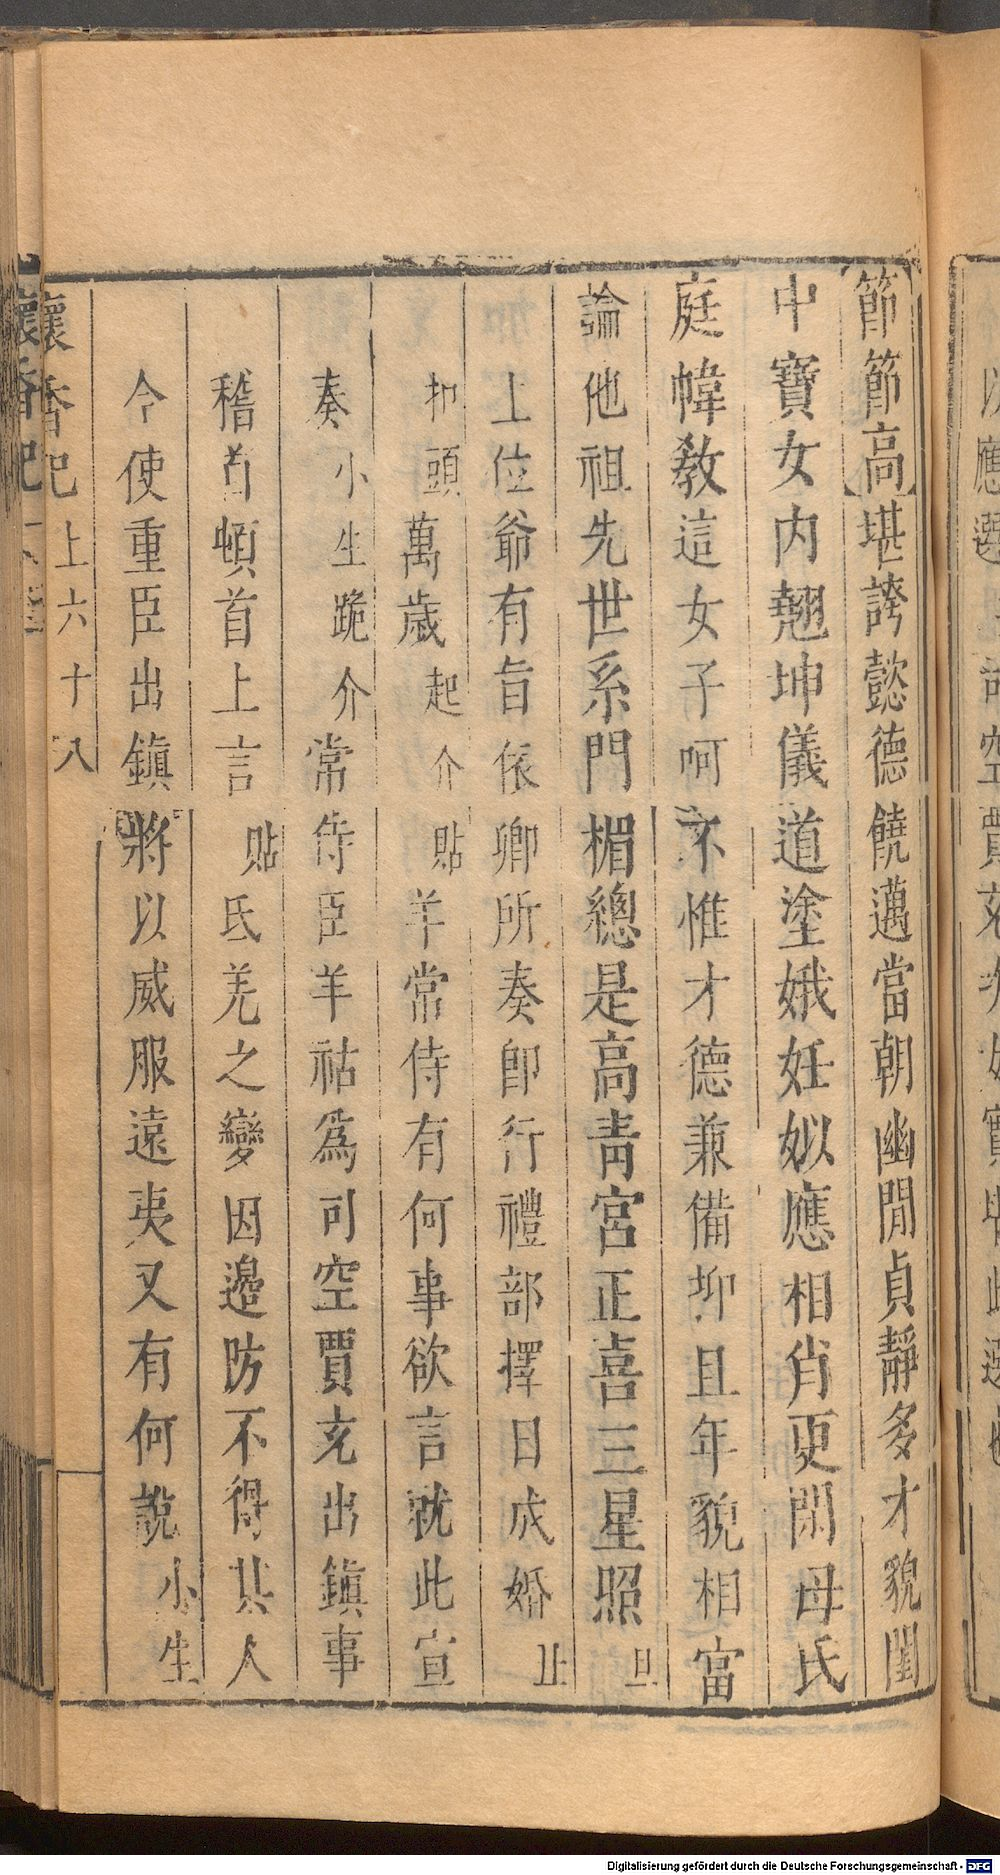 節節高堪誇懿德饒邁當朝幽閒貞靜多才貌閨
中寶女内翹坤儀道塗娥妊姒應相肖更閑母氏
庭幃教這女子呵不惟才德兼備抑且年貌相富
論他祖先世系門楣總是高靑宮正喜三星照旦
上位爺有旨依卿所奏卽行禮部擇日成婚止
扣頭萬歲起介貼羊常侍有何事欲言就此宣
奏小生跪介常侍臣羊祜爲司空賈充出鎭事
稽首頓首上言貼氐羌之變因邊防不得其人
今使重臣出鎭將以威服遠夷又有何說小生
懷香記上六十八
Digitalisierung gefördert durch die Deutsche Forschungsgemeinschaft - DFG